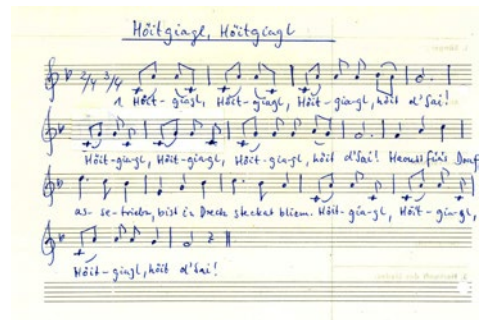 Höitgiagl, Höitgiagl
2/4 3/4
1. Höit-giagl, Höit-giagl, Höit-gia-gl, höit d'Sai!
Höit-gia-gl, Höit-gia-gl, Höit-gia-gl, höit d'Sai! Heouss fins Dorf
as-se-triebn, bist in Dreck steckat bliem. Höit-gia-gl, Höit-gia-gl,
Höit-giagl, höit d'Sai!